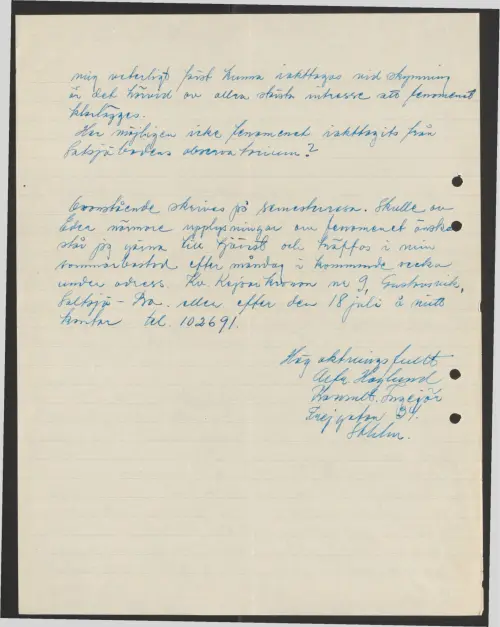 mig veterligt först kunna iakttagas vid skymning
är det härvid av allra största intresse att fenomenet
klarlägges.
Har möjligen icke fenomenet iakttagits från
Saltsjöbadens observatorium?
Ovanstående skrives på semesterresa. Skulle av
Eder närmare upplysningar om fenomenet önskas
står jag gärna till tjänst och träffas i min
sommarbostad efter måndag i kommande vecka
under adress. Kv. nr 9, Gustavsvik,
Saltsjö-Boo. eller efter den 18 juli å mitt
kontor tel. 102691.
Högaktningsfullt
Haglund
Konsult. Ingenjör
Frejgatan
Sthlm.